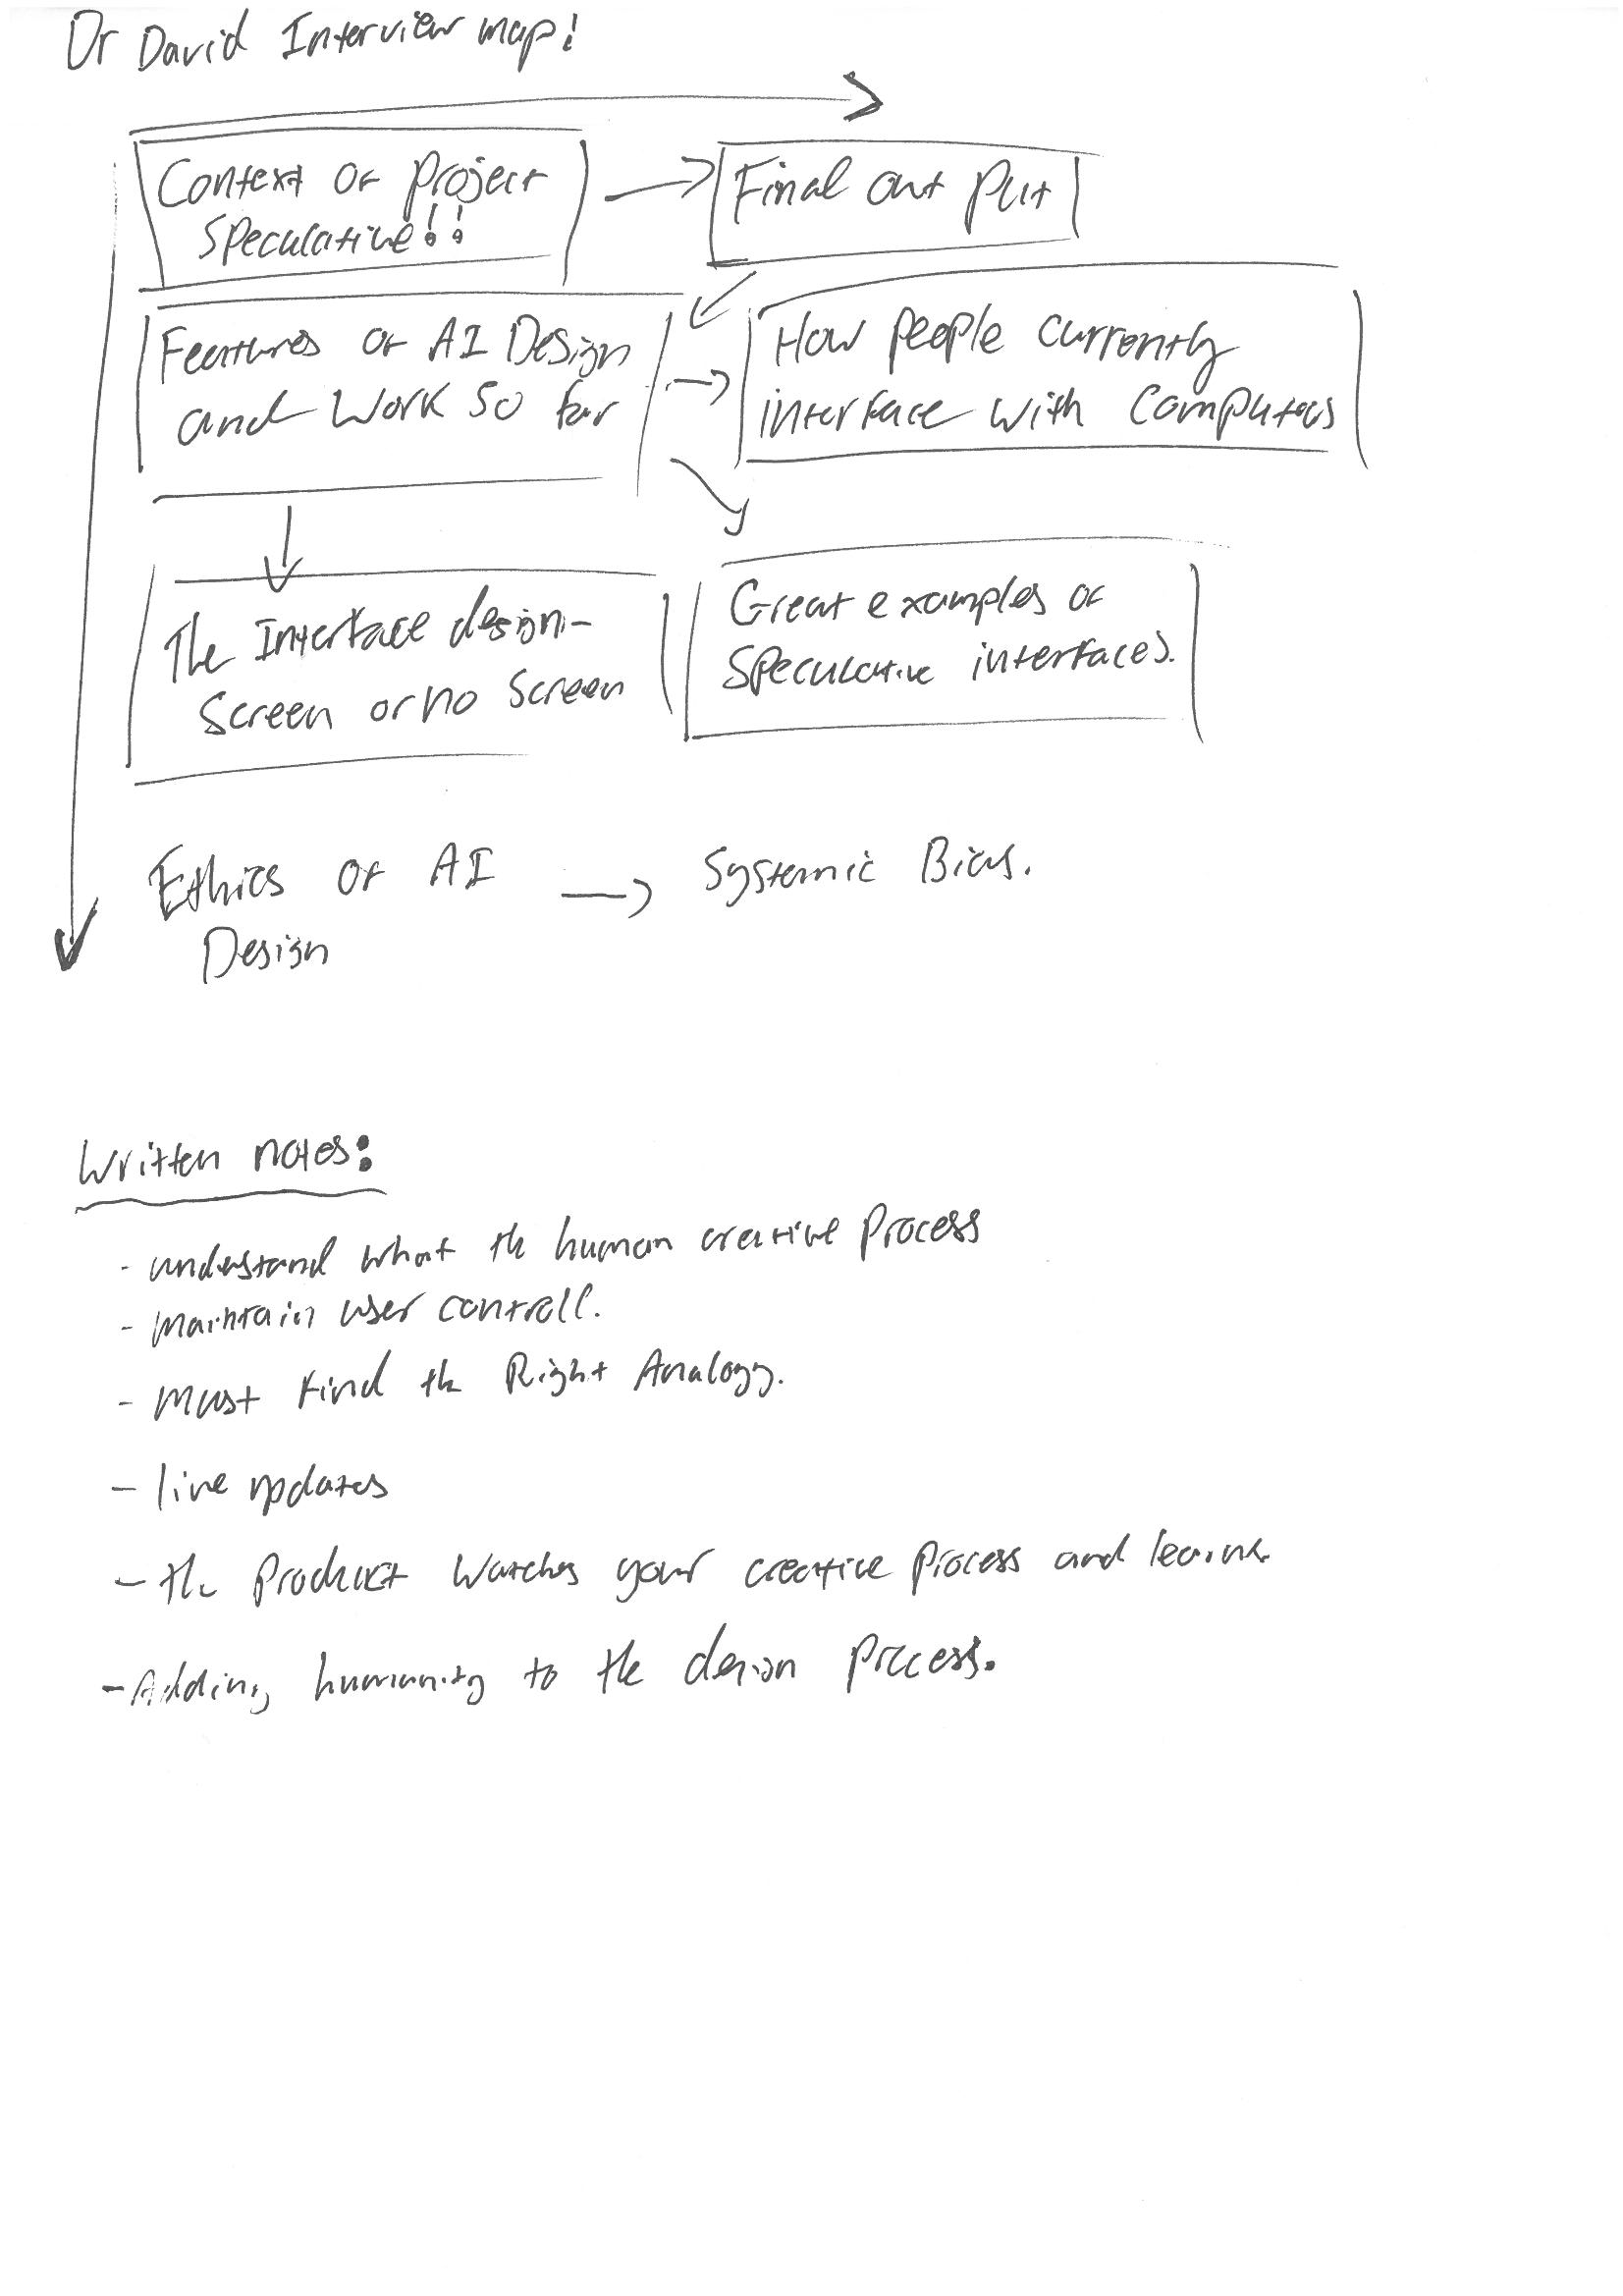 Dr David Interview map!
Context of project
Speculative!!
Final out put
Features of AI Design
and Work So far
How people currently
interface with Computers
The Interface design-
Screen or no Screen
Great examples of
Speculative interfaces.
Ethics of AI
Design
Systemic Bias.
Written notes:
- understand what the human creative process
- maintain user controll.
- must find the Right Analogy.
- live updates
- the Product Watches your creative process and
- Adding humanity to the design process.